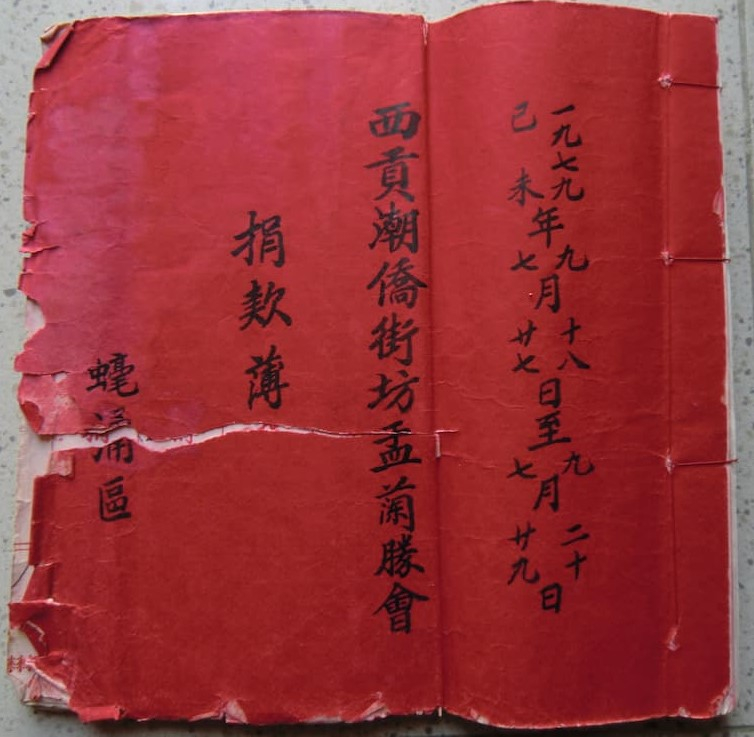 一九七九年九月十八日至九月二十日
己未七廿七七廿九
西貢潮僑街坊盂蘭勝會
捐欵薄
蠔涌區